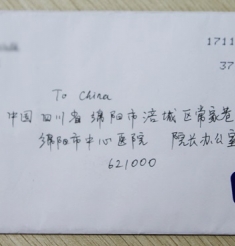 1711
37
To China
中国 四川省 绵阳市涪城区常家巷
绵阳市中心医院 院长办公室
621000